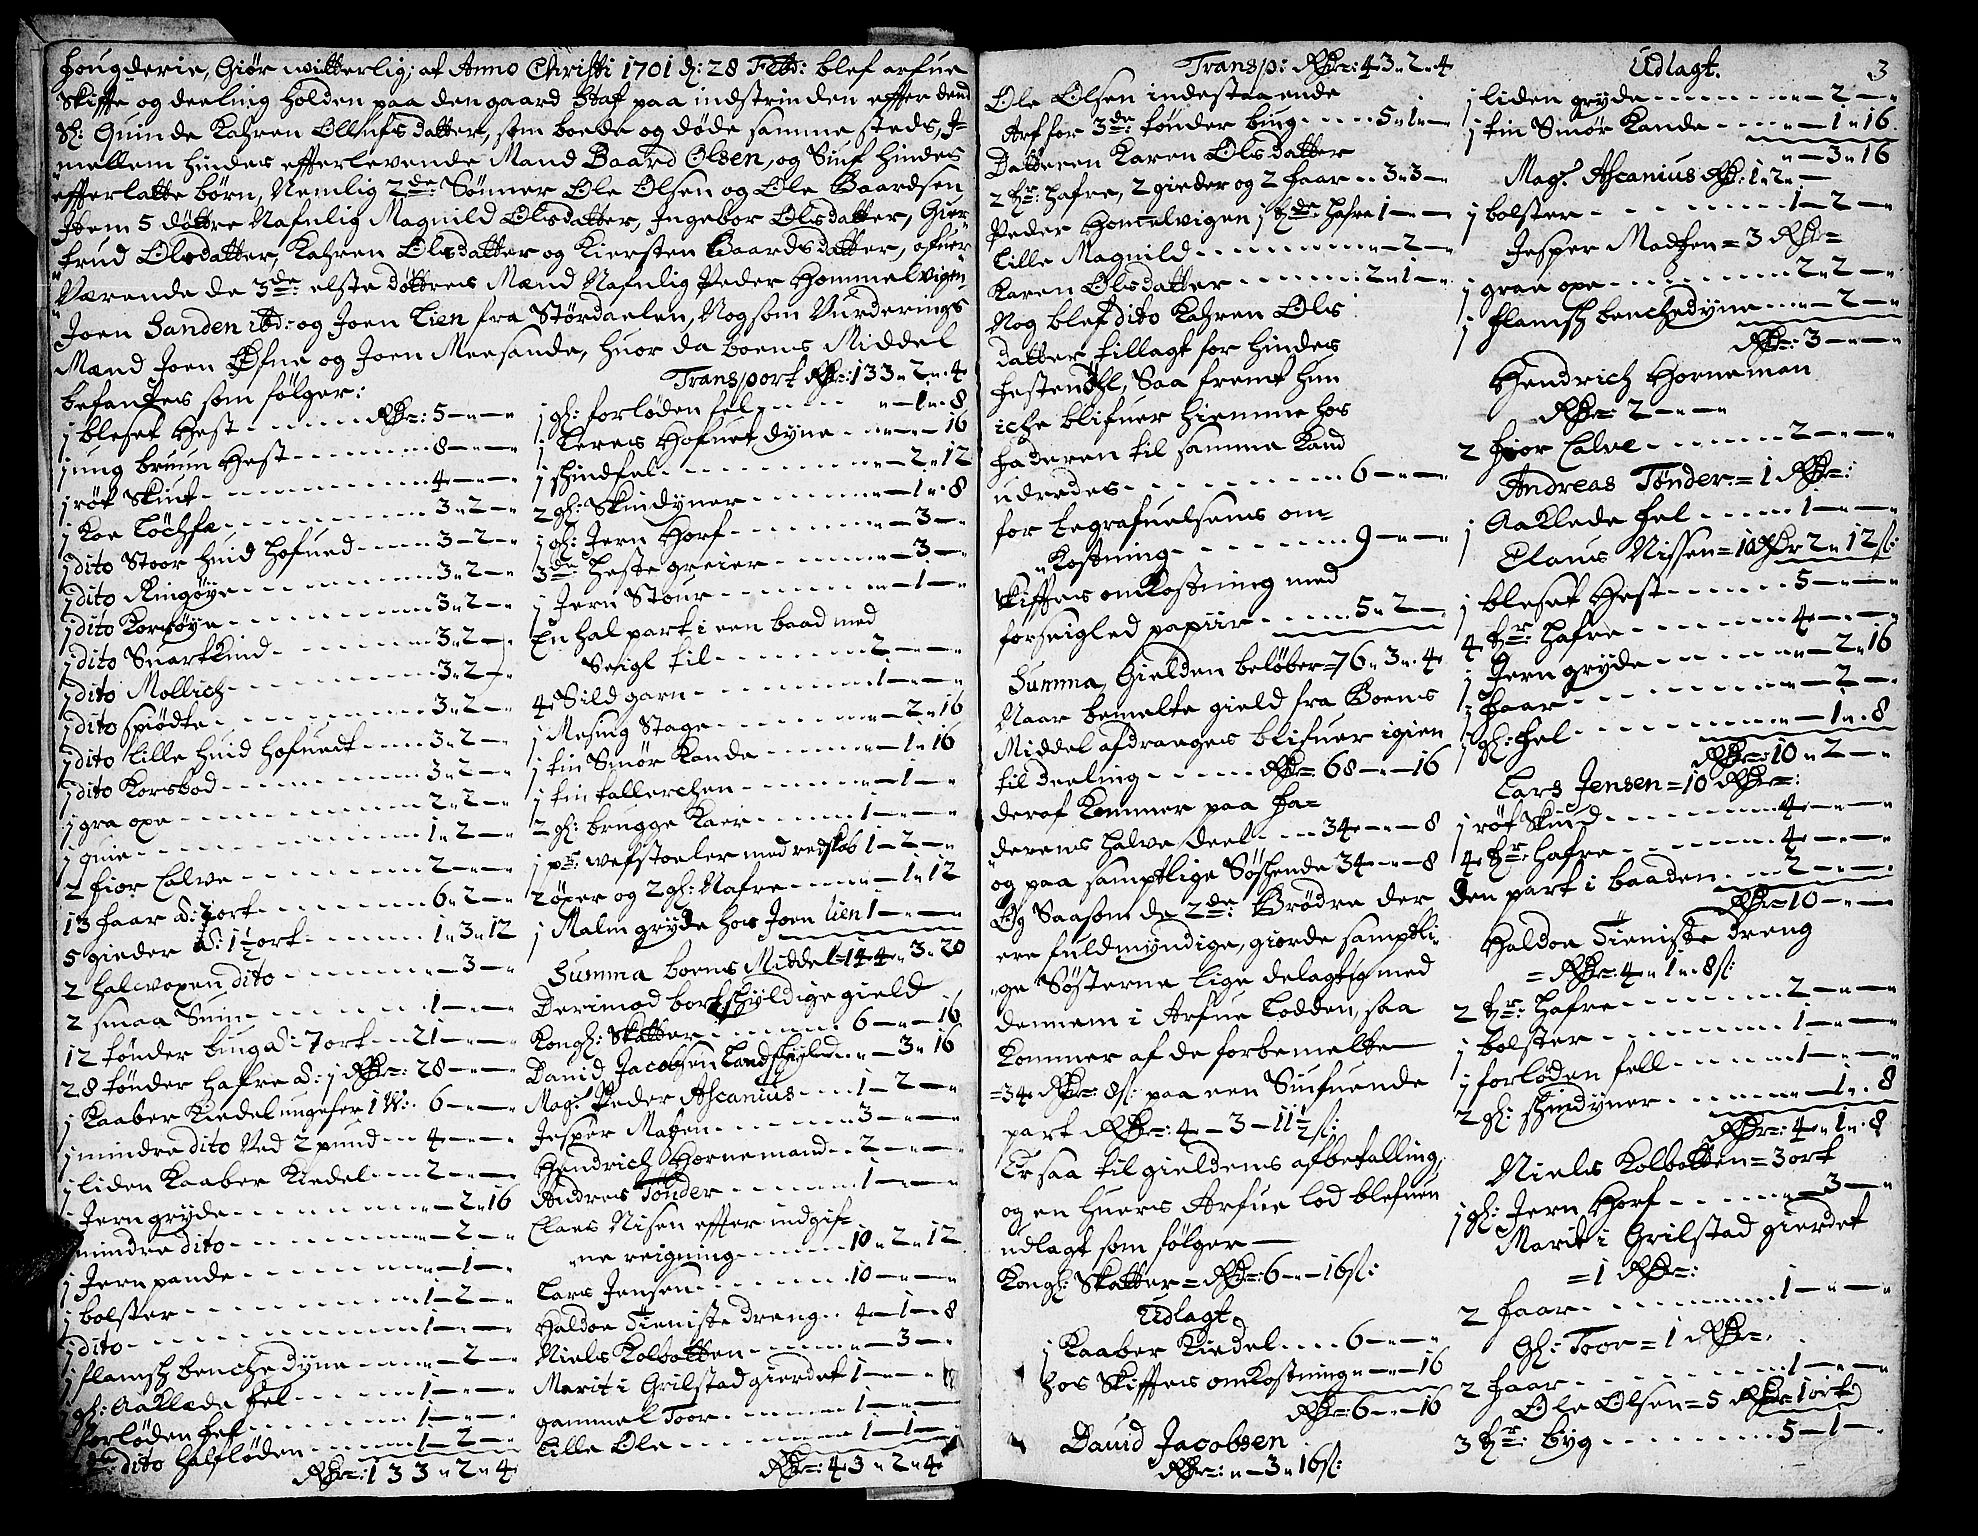 fougderie, Giør witterlig; at Anno Christi 1701 d: 28 Feb: blef arfue
Skiffte og deeling holden paa den gaard Staf paa indstrinden effter dend
Sl: Quinde Kahren Ollufs datter, som boede og døde samme steds, I-
mellem hindes effterlevende Mand Baard Olsen, og Siuf hindes
effterlatte børn, Nemlig 2de Sønner Ole Olsen og Ole Baardsen
Item 5 døttre Nafnlig Magnild Olsdatter, Ingebor Olsdatter, Giær-
trud Olsdatter, Kahren Olsdatter og Kiersten Baardsdatter, ofuer-
Værende de 3de elste døttres Mænd Nafnlig Peder Hommelvigen
Joen Sanden ibd: og Joen Lien fra Størdaelen, Nog som Vurderings
Mænd Joen Øfne og Joen Meesande, huor da boens Middel
befantes som følger:
j bleset Hest - - - Rdr: 5 — " — "
j ung bruun Hest - - - 8 — " — "
j røt Skiut - - - 4 — " — "
j Koe Løchfæ - - - 3 " 2 — "
j dito Stoor huid hofued - - - 3 — 2 — "
j dito Ringøye - - - 3 " 2 — "
j dito Korsøye - - - 3 " 2 — "
j dito Snartkind - - - 3 " 2 — "
j dito Mollich - - - 3 " 2 — "
j dito spiødte - - - 3 " 2 — "
j dito lille huid hofuedt - - - 3 " 2 — "
j dito Korsbod - - - 3 " 2 — "
j gra oxe - - - 2 " 2 — "
j quie - - - 1 " 2 — "
2 fior Calve - - - 2 — " — "
13 faar a: 2 ort - - - 6 " 2 — "
5 gieder a: 1½ ort - - - 1 " 3 " 12
2 halvoxen dito - - - " — 3 — "
2 smaa Suin - - - 1 — " — "
12 tønder bug a: 7 ort - - 21 — " — "
28 tønder hafre a: j Rdr: 28 — " — "
j Kaaber Kiedel ungefer 1 W: 6 — " — "
j mindre dito Ved 2 pund - - 4 — " — "
j liden Kaaber Kiedel - - - 2 — " — "
j Jern gryde - - - " — 2 " 16
j mindre dito - - - " — 2 — "
j Jern pande - - - " — 1 — "
j bolster - - - 1 — 2 — "
j dito - - - 1 — " — "
j flamsch benchedyne - - - " — 2 — "
j gl: Aaklæde fel - - - 1 — " — "
j forløden fel - - - 1 — " — "
2de dito halfløden - - - 1 — 2 — "
Rdr: 133 " 2 " 4
Transport Rdr: 133 " 2 " 4
j gl: forløden fel - - - " — 1 " 8
j Lerers Hofuet dyne - - - " — " — 16
j schindfel - - - " — 2 " 12
2 gl: Skindyner - - - " — 1 " 8
j gl: Jern Horf - - - " — 3 — "
3de heste greier - - - " — 3 — "
j Jern Stour - - - " — 1 — "
En hal part i een baad med
Seigl til - - - 2 — " — "
4 Sildgarn - - - 1 — " — "
j Mesing Stage - - - " — 2 " 16
j tin Smør Kande - - - " — 1 " 16
j tin tallerchen - - - " — 1 — "
2 gl: brugge Kaer - - - 1 — " — "
j pr: wefstoeler med redskab 1 — 2 — "
2 øxer og 2 gl: Nafre - - - " — 1 " 12
j Malm gryde hos Joen Lien 1 — " — "
Summa boens Middel = 144 " 3 " 20
Derimod bortskyldige gield
Kongl: Skatter - - - 6 — " — 16
David Jacobsen Landskyld - - " — 3 " 16
Mag: Peder Ascanius - - - 1 — 2 — "
Jesper Matzen - - - 3 — " — "
Hendrich Hornemand - - 2 — " — "
Andres Tønder - - - 1 — " — "
Claes Nisen effter indgif-
ne reigning - - - 10 " 2 " 12
Lars Jensen - - - 10 — " — "
Haldoe Tieniste dreng - - 4 — 1 — 8
Niels Kolbotten - - - " — 3 — "
Marit i Grilstad gierdet 1 — " — "
gammel Toor - - - 1 — " — "
Lille Ole - - - 1 — 1 — "
Rdr: 43 " 2 " 4
Transp: Rdr: 43 " 2 " 4
Ole Olsen indestaaende
Arf for 3de tønder biug - - - 5 " 1 — "
Datteren Karen Olsdatter
2 tr: hafre, 2 gieder og 2 faar - - 3 " 3 — "
Peder Homelvigen j tde hafre 1 — " — "
Lille Magnild - - - " — 2 — "
Karen Olsdatter - - - 2 " 1 — "
Nog blef dito Kahren Ols
datter tillagt for hindes
festensøhl, Saa fremt hun
iche blifuer hiemme hos
faderen til samme Kand
udredes - - - 6 — " — "
for begrafuelsens om-
Kostning - - - 9 — " — "
Skifftes omkostning med
forseigled papiir - - - 5 " 2 — "
Summa Gielden beløber = 76 " 3 " 4
Naar bemelte gield fra Boens
Middel afdraeges blifuer igien
til deeling - - - Rdr = 68 — " — 16
deraf Kommer paa fa-
derens halve deel - - - 34 — " — 8
og paa samptlige Søschende 34 — " — 8
Og Saasom de 2de Brødre der
ere fuldmyndige, giorde samptli-
ge Søsterne lige delagtig med
dennem i Arfue Lodden, saa
Kommer af de forbemelte
= 34 Rdr 8 s: paa een Siufuende
part Rdr: 4 — 3 — 11½ s:
Er saa til gieldens afbetalling,
og en huers Arfue lod blefuen
udlagt som følger —
Kongl: Skatter = Rdr: 6 — " — 16 s:
Udlagt.
j Kaaber Kiedel - - - 6 — " — "
hos Skifftes omkostning " — " — 16
Rdr: 6 — " — 16
David Jacobsen
Rdr: " — 3 " 16 s:
Udlagt.
3
j liden gryde - - - " — 2 — "
j tin Smør Kande - - - " — 1 " 16
" — 3 " 16
Mag: Ascanius Rdr: 1 " 2 " —
j bolster - - - 1 — 2 — "
Jesper Madtzen = 3 Rdr =
j graa oxe - - - 2 " 2 — "
j flamsch benchedyne - - - " — 2 — "
Rdr: 3 — " — "
Hendrich Horneman
Rdr: 2 — " — "
2 fior Calve - - - 2 — " — "
Andreas Tønder = 1 Rdr:
j Aaklede fel - - - 1 — " — "
Claus Nissen = 10 Rdr 2 " 12 s:
j bleset Hest - - - 5 — " — "
4 tr: hafre - - - 4 — " — "
j Jern gryde - - - " — 2 " 16
j faar - - - " — 2 — "
j gl: fel - - - " — 1 " 8
Rdr: 10 " 2 — "
Lars Jensen = 10 Rdr:
j røt Skiud - - - 4 — " — "
4 tr: hafre - - - 4 — " — "
den part i baaden - - - 2 — " — "
Rdr: 10 — " — "
Haldoe Tieniste dreng
= Rdr: 4 " 1 " 8 s:
2 tr: hafre - - - 2 — " — "
j bolster - - - 1 — " — "
j forløden fell - - - 1 — " — "
2 gl: schindyner - - - " — 1 " 8
Rdr: 4 " 1 " 8
Niels Kolbotten = 3 ort
j gl: Jern Horf - - - " — 3 — "
Marit i Grilstad gierdet
= 1 Rdr:
2 faar - - - 1 — " — "
Gl: Toor = 1 Rdr:
2 faar - - - 1 — " — "
Ole Olsen = 5 Rdr 1 ort
3 tr: byg - - - 5 — 1 — "